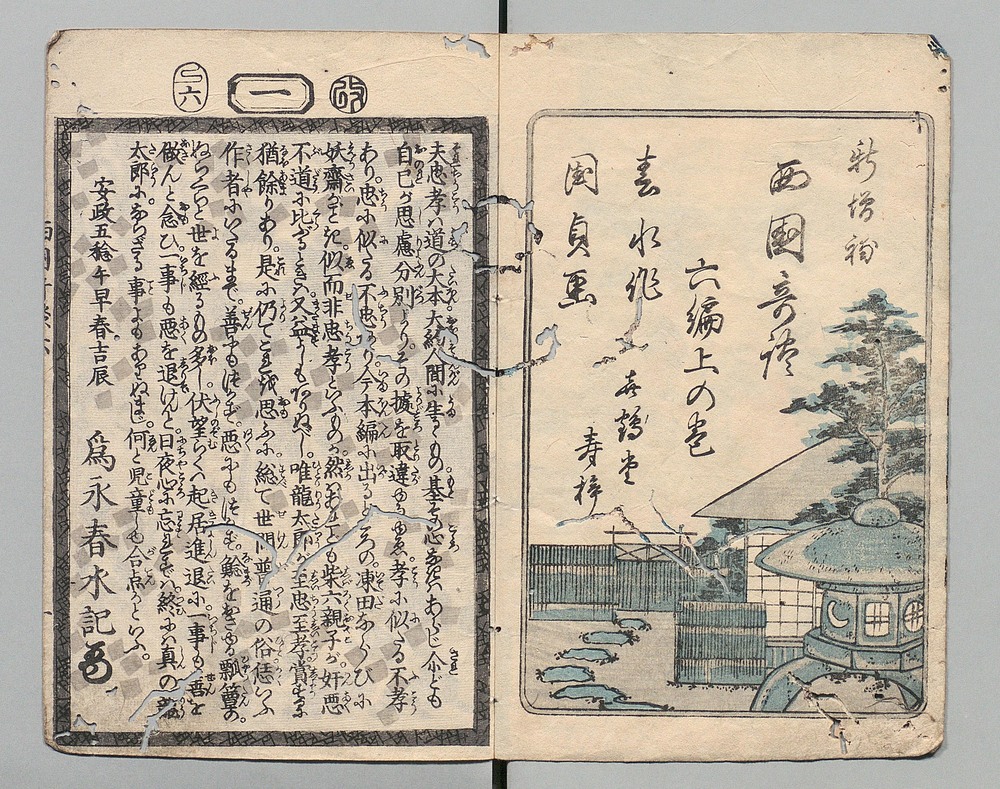 新増補
西國奇談
六編上の巻
春水作
國貞画
喜鶴堂
寿梓
改
一
六
夫忠孝ハ道の大本大綱人間に生るもの基を心
自己が思慮分別より、その據を取違ゆるゆゑ、孝に似たる不孝
あり。忠に似たる不忠あり。今本編に出るところの凍田ならびに
妖齋など、似而非忠孝といふもの。然れども柴六親子が奸悪
不道に比ぶるときハ又益しもありぬべし。唯龍太郎が至忠至孝賞するに
猶餘りあり。是に仍てこれを思ふに総て世間普通の俗恁いふ
作者にいたるまで、善にもせず悪にもせず、鯰をおさゆる瓢箪の
ぬらくらと世を經るもの多し。伏望らくハ起居進退に一事も善を
做んと念ひ一事も悪を退けんと日夜心に忘れずバ終にハ真の龍
太郎にならざる事よもあらぬまじ。何と児童も合点かといふ。
安政五稔午早春吉辰
爲永春水記